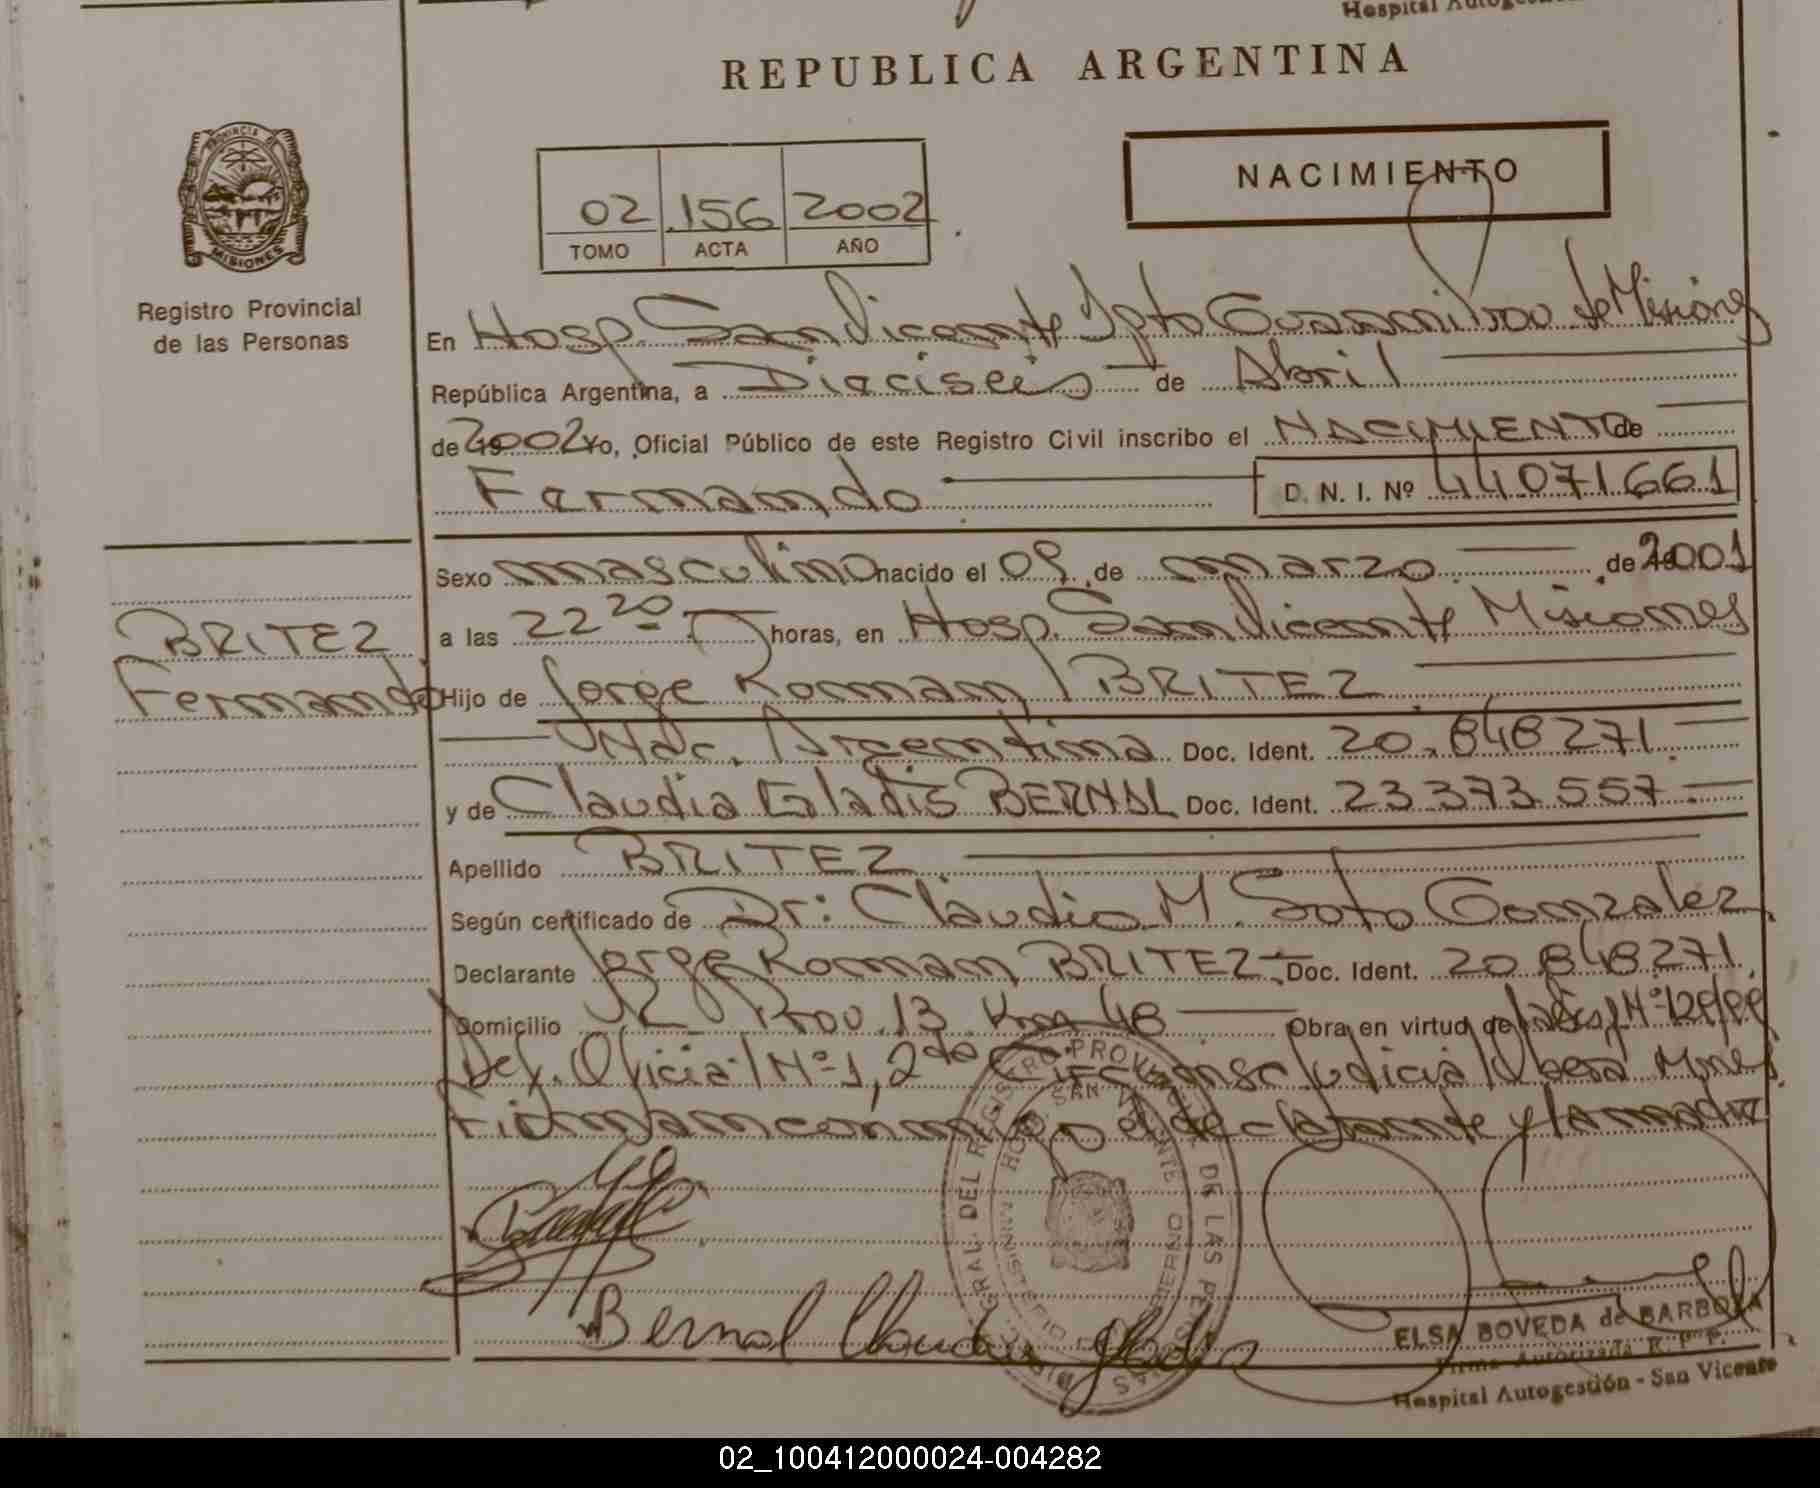 Hospital Autogestión
REPUBLICA ARGENTINA
PROVINCIA DE
MISIONES
Registro Provincial
de las Personas
02 156 2002
TOMO ACTA AÑO
NACIMIENTO
En Hosp. San Vicente Dpto Guaraní Prov de Misiones
República Argentina, a Dieciseis de Abril
de 2002 Yo, Oficial Público de este Registro Civil inscribo el NACIMIENTO de
Fernando D. N. I. Nº 44071661
Sexo masculino nacido el 09 de marzo de 2001
a las 22 20 horas, en Hosp. San Vicente Misiones
BRITEZ
Fernando
Hijo de Jorge Roman BRITEZ
Nac. Argentina Doc. Ident. 20.848271
y de Claudia Gladis BERNAL Doc. Ident. 23 373 557
Apellido BRITEZ
Según certificado de Dr: Claudio M. Soto Gonzalez
Declarante Jorge Roman BRITEZ Doc. Ident. 20 848271
Domicilio R Prov. 13 Km 48 Obra en virtud de
Def. Oficial Nº 1, 2da Circunsc Judicial Obera Mnes
Firman conmigo el declarante y la madre
REGISTRO PROVINCIAL DE LAS PERSONAS
HOSP. SAN VICENTE
MINISTERIO DE GOBIERNO
Bernal Claudia Gladis
ELSA BOVEDA de BARBOZA
Firma Autorizada R. P. P.
Hospital Autogestión - San Vicente
02_100412000024-004282